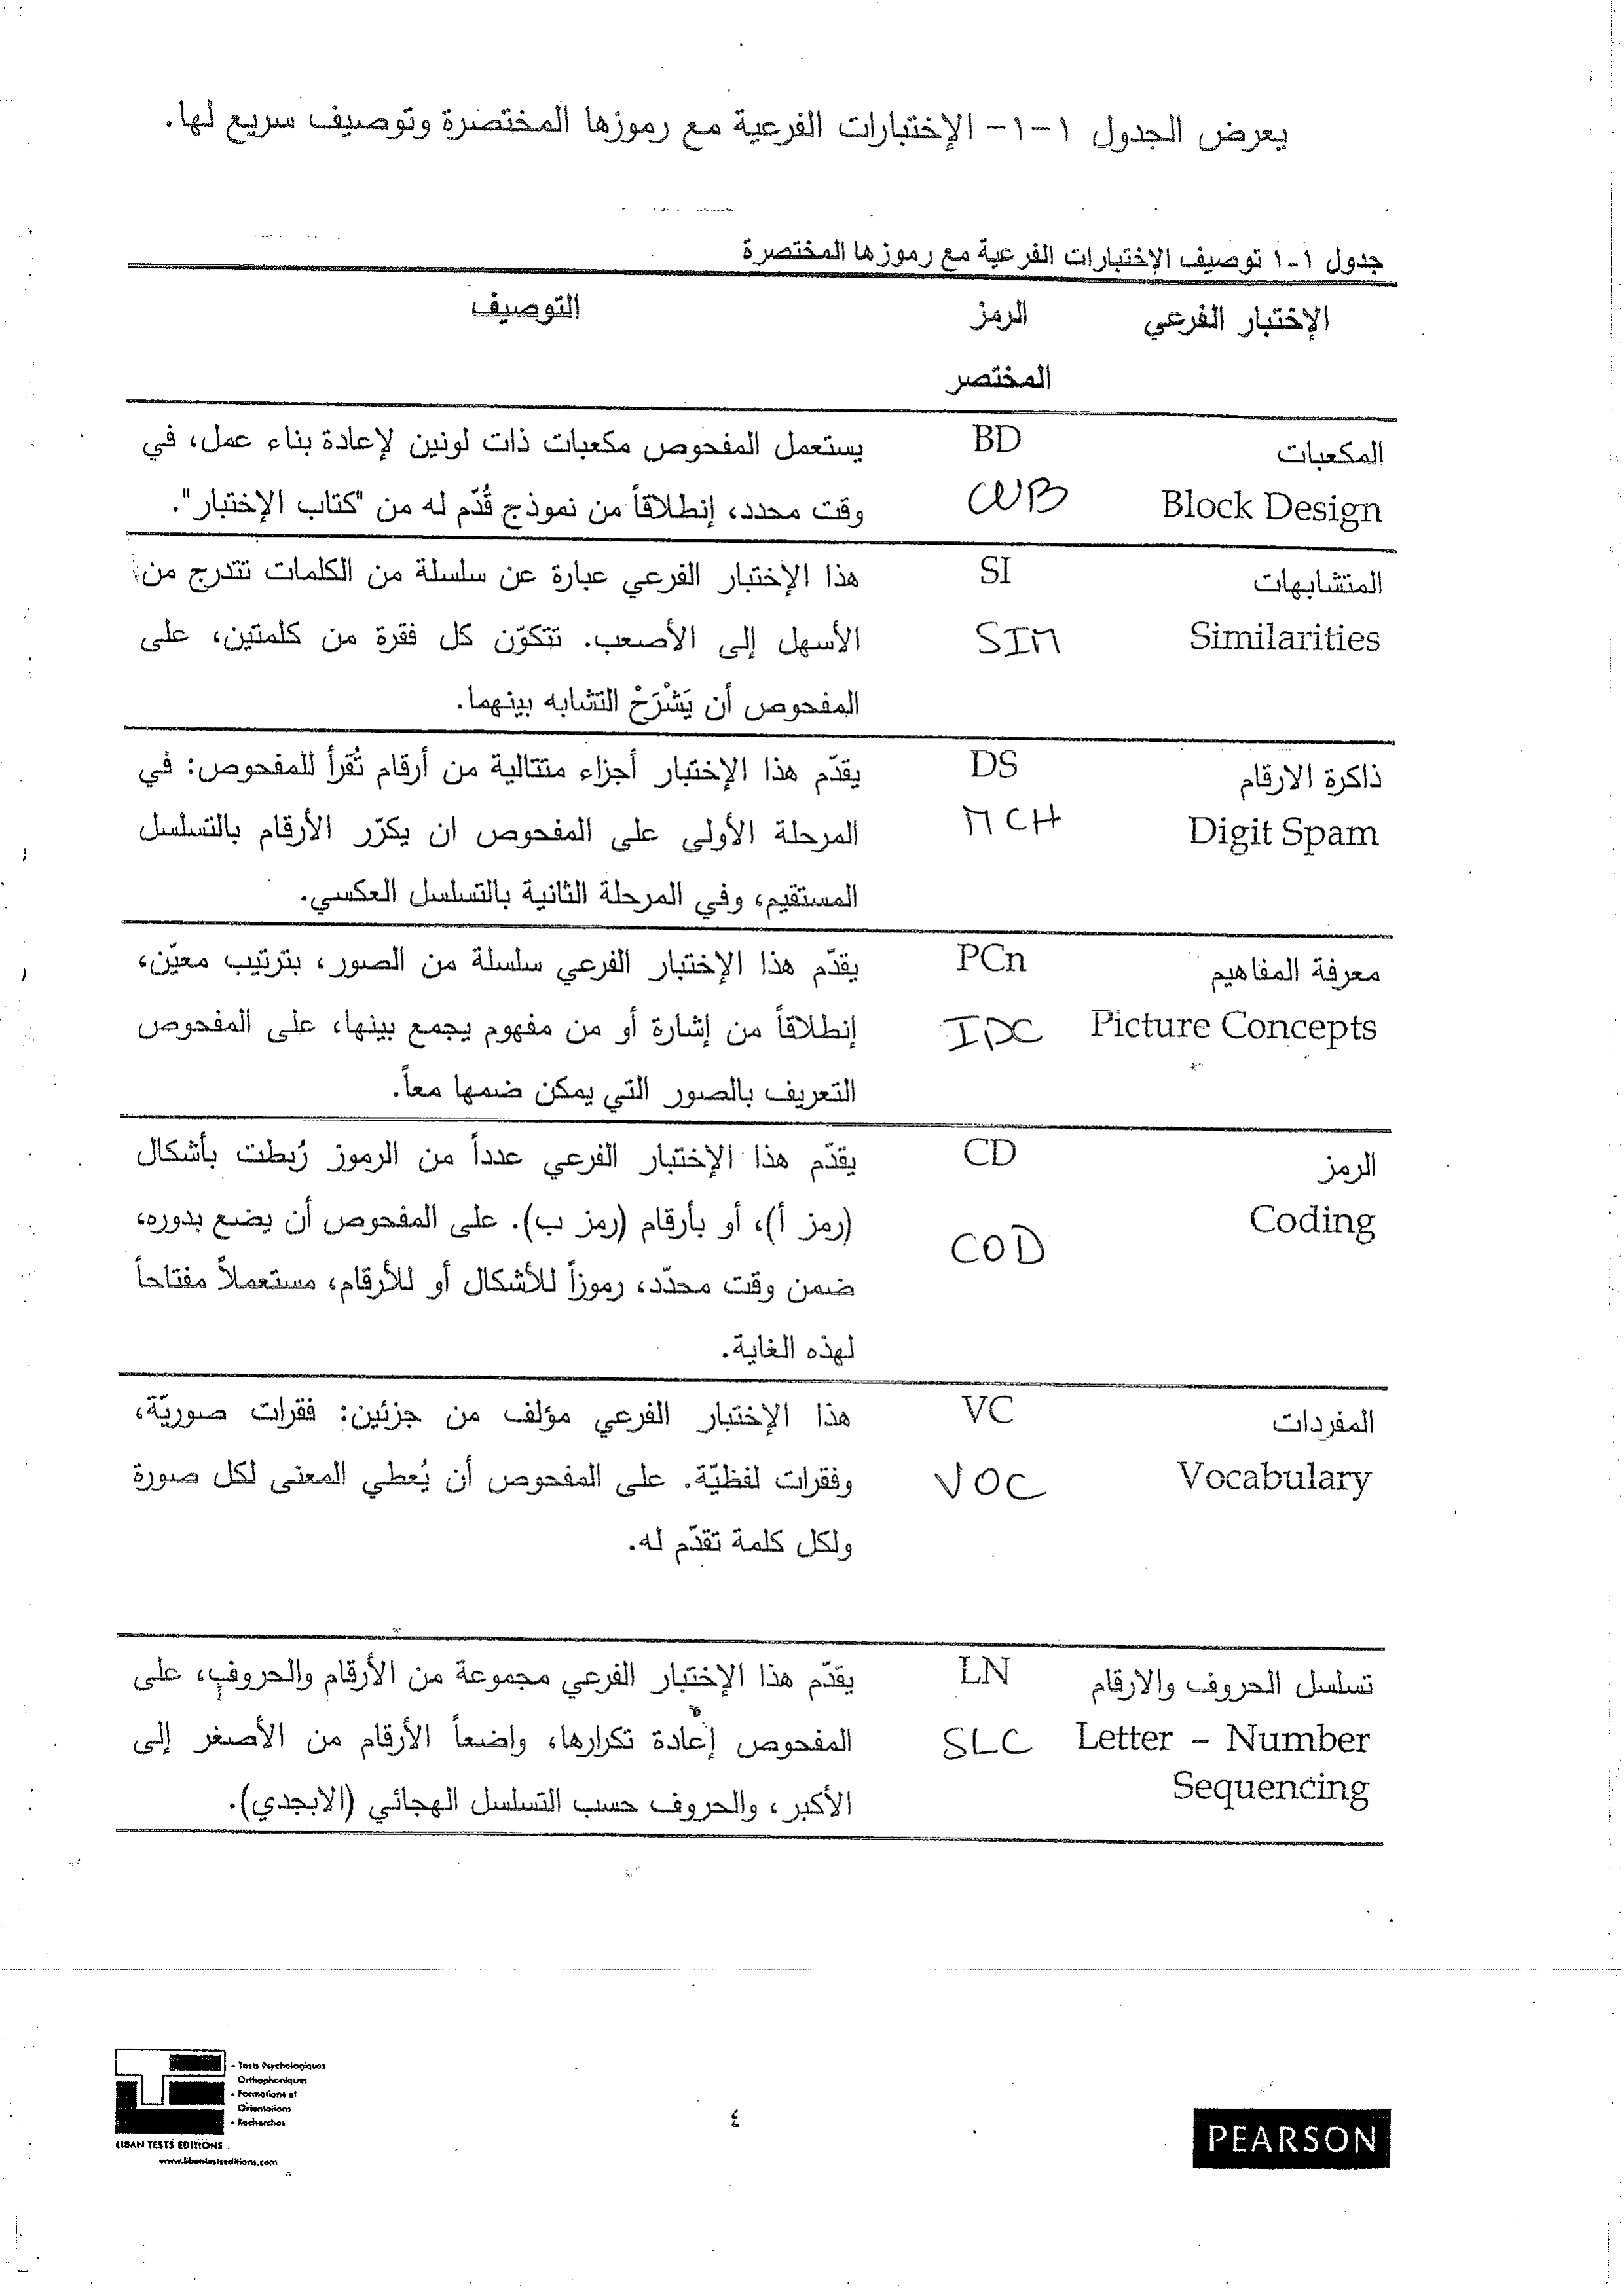 يعرض الجدول ١-١- الإختبارات الفرعية مع رموزها المختصرة وتوصيف سريع لها.
جدول ١-١ توصيف الإختبارات الفرعية مع رموزها المختصرة
الإختبار الفرعي الرمز التوصيف
المختصر
المكعبات BD يستعمل المفحوص مكعبات ذات لونين لإعادة بناء عمل، في
Block Design CUB وقت محدد، إنطلاقاً من نموذج قُدّم له من "كتاب الإختبار".
المتشابهات SI هذا الإختبار الفرعي عبارة عن سلسلة من الكلمات تتدرج من
Similarities SIM الأسهل إلى الأصعب. تتكوّن كل فقرة من كلمتين، على
المفحوص أن يَشْرَحْ التشابه بينهما.
ذاكرة الارقام DS يقدّم هذا الإختبار أجزاء متتالية من أرقام تُقرأ للمفحوص: في
Digit Spam MCH المرحلة الأولى على المفحوص ان يكرّر الأرقام بالتسلسل
المستقيم، وفي المرحلة الثانية بالتسلسل العكسي.
معرفة المفاهيم PCn يقدّم هذا الإختبار الفرعي سلسلة من الصور، بترتيب معيّن،
Picture Concepts IDC إنطلاقاً من إشارة أو من مفهوم يجمع بينها، على المفحوص
التعريف بالصور التي يمكن ضمها معاً.
الرمز CD يقدّم هذا الإختبار الفرعي عدداً من الرموز رُبطت بأشكال
Coding COD (رمز أ)، أو بأرقام (رمز ب). على المفحوص أن يضع بدوره،
ضمن وقت محدّد، رموزاً للأشكال أو للأرقام، مستعملاً مفتاحاً
لهذه الغاية.
المفردات VC هذا الإختبار الفرعي مؤلف من جزئين: فقرات صوريّة،
Vocabulary VOC وفقرات لفظيّة. على المفحوص أن يُعطي المعنى لكل صورة
ولكل كلمة تقدّم له.
تسلسل الحروف والارقام LN يقدّم هذا الإختبار الفرعي مجموعة من الأرقام والحروف، على
Letter - Number SLC المفحوص إعادة تكرارها، واضعاً الأرقام من الأصغر إلى
Sequencing الأكبر، والحروف حسب التسلسل الهجائي (الابجدي).
- Tests Psychologiques
Orthophoniques.
- Formations et
Orientations
- Recherches
LIBAN TESTS EDITIONS
www.libantestseditions.com
٤
PEARSON